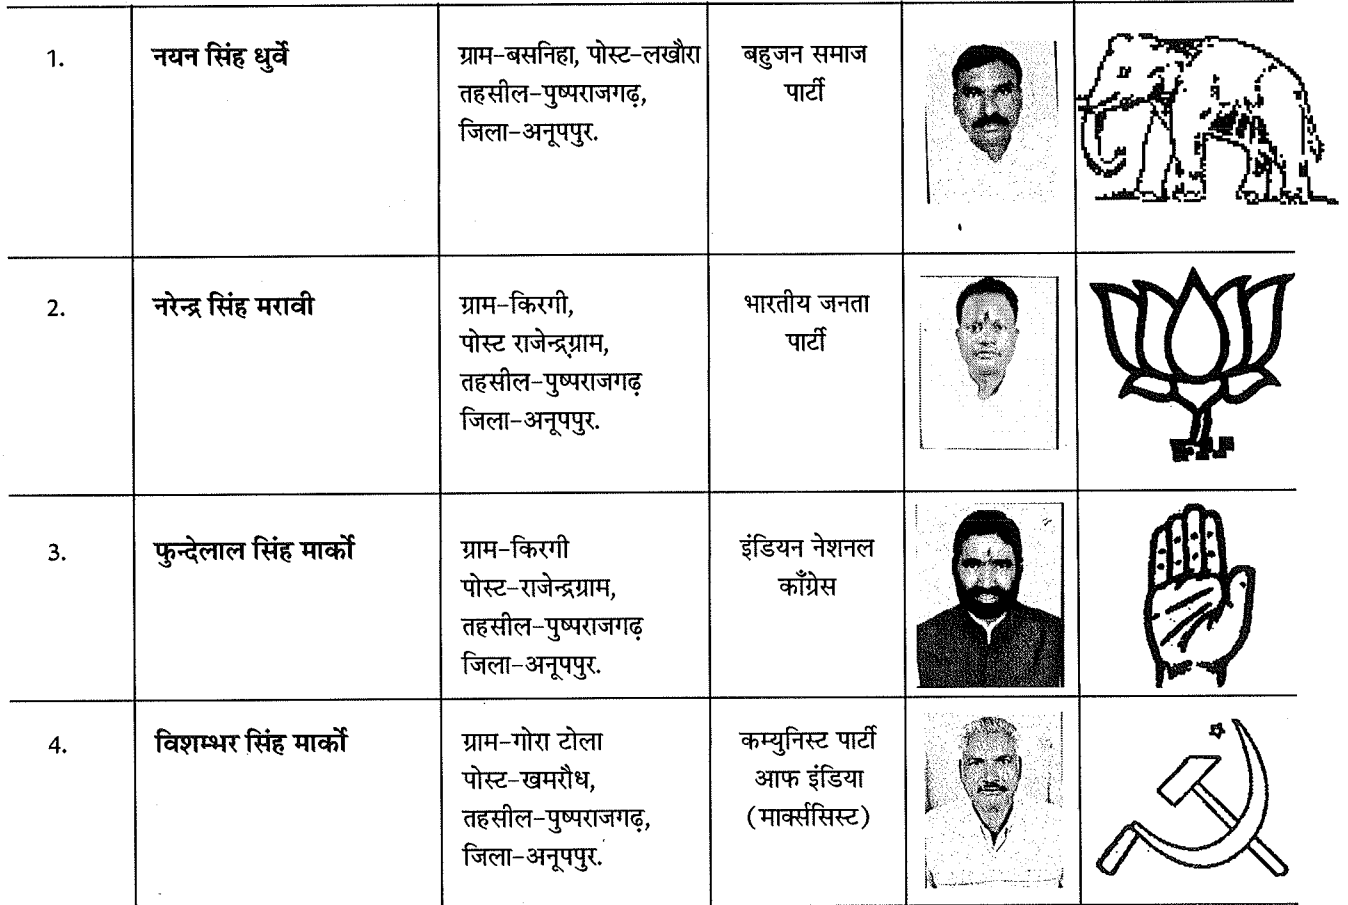 1.
नयन सिंह धुर्वे
ग्राम-बसनिहा, पोस्ट-लखौरा
तहसील-पुष्पराजगढ़,
जिला-अनूपपुर.
बहुजन समाज
पार्टी
2.
नरेन्द्र सिंह मरावी
ग्राम-किरगी,
पोस्ट राजेन्द्रग्राम,
तहसील-पुष्पराजगढ़
जिला-अनूपपुर.
भारतीय जनता
पार्टी
3.
फुन्देलाल सिंह मार्को
ग्राम-किरगी
पोस्ट-राजेन्द्रग्राम,
तहसील-पुष्पराजगढ़
जिला-अनूपपुर.
इंडियन नेशनल
काँग्रेस
4.
विशम्भर सिंह मार्को
ग्राम-गोरा टोला
पोस्ट-खमरौध,
तहसील-पुष्पराजगढ़,
जिला-अनूपपुर.
कम्युनिस्ट पार्टी
आफ इंडिया
(मार्क्ससिस्ट)